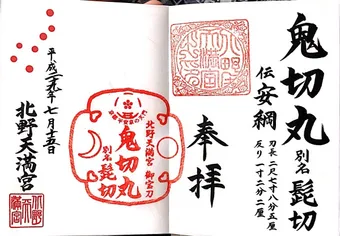 鬼切丸 別名 髭切
伝 安綱
刀長 二尺七寸八分五厘
反り 一寸二分二厘
奉拝
北野天満宮 御宝刀
鬼切丸
別名 髭切
平成二九年七月十五日
北野天満宮